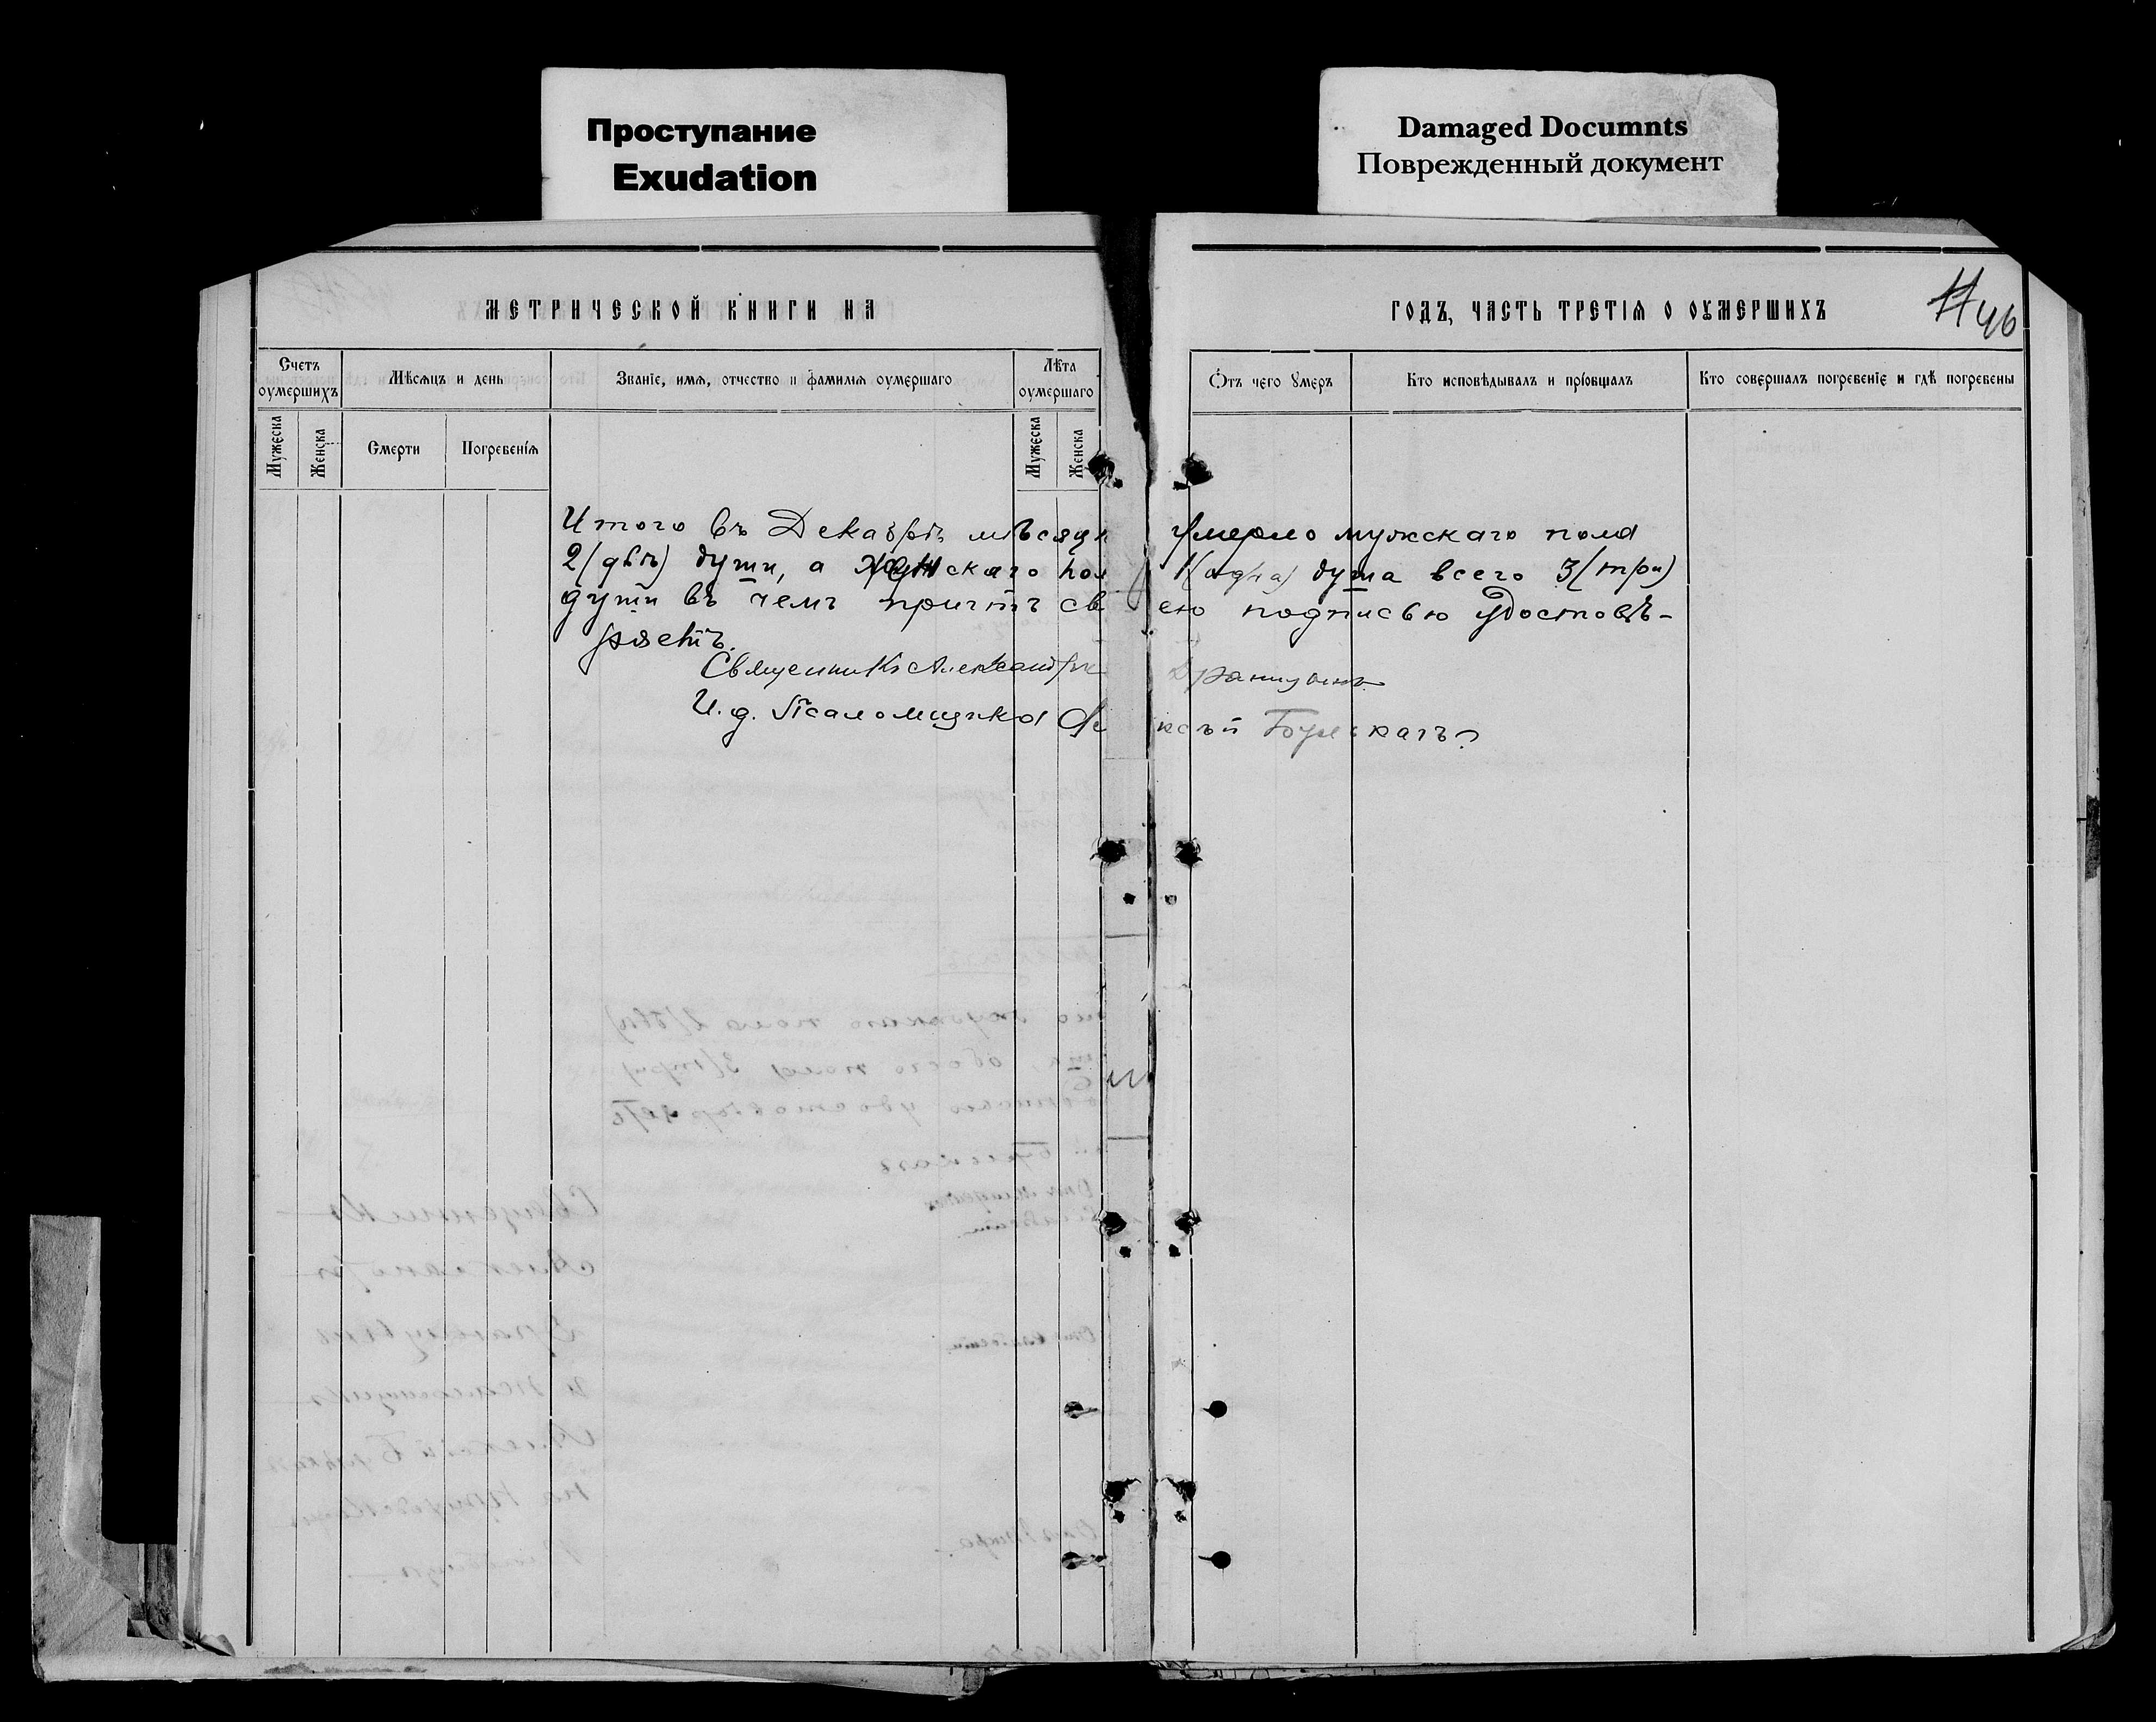 Проступание
Exudation
Damaged Documnts
Поврежденный документ
МЕТРИЧЕСКОЙ КНИГИ НА
ГОДЪ, ЧАСТЬ ТРЕТІѦ О ОУМЕРШИХЪ
46
Счетъ оумершихъ
Мѣсѧцъ и день
Званїе, имѧ, отчество и фамилїѧ оумершаго
Лѣта оумершаго
Ѿтъ чего ꙋмеръ
Кто исповѣдывалъ и прїѡбщалъ
Кто совершалъ погребенїе и гдѣ погребены
Мужеска
Женска
Смерти
Погребенїѧ
Мужеска
Женска
Итого въ Декабрѣ мѣсяцѣ умерло мужскаго пола
2 (двѣ) души, а женскаго пол 1 (одна) душа всего 3 (три)
души въ чемъ причтъ своею подписью удостовѣ-
ряетъ.
Священникъ Александръ
И. д. Псаломщика Алексѣй